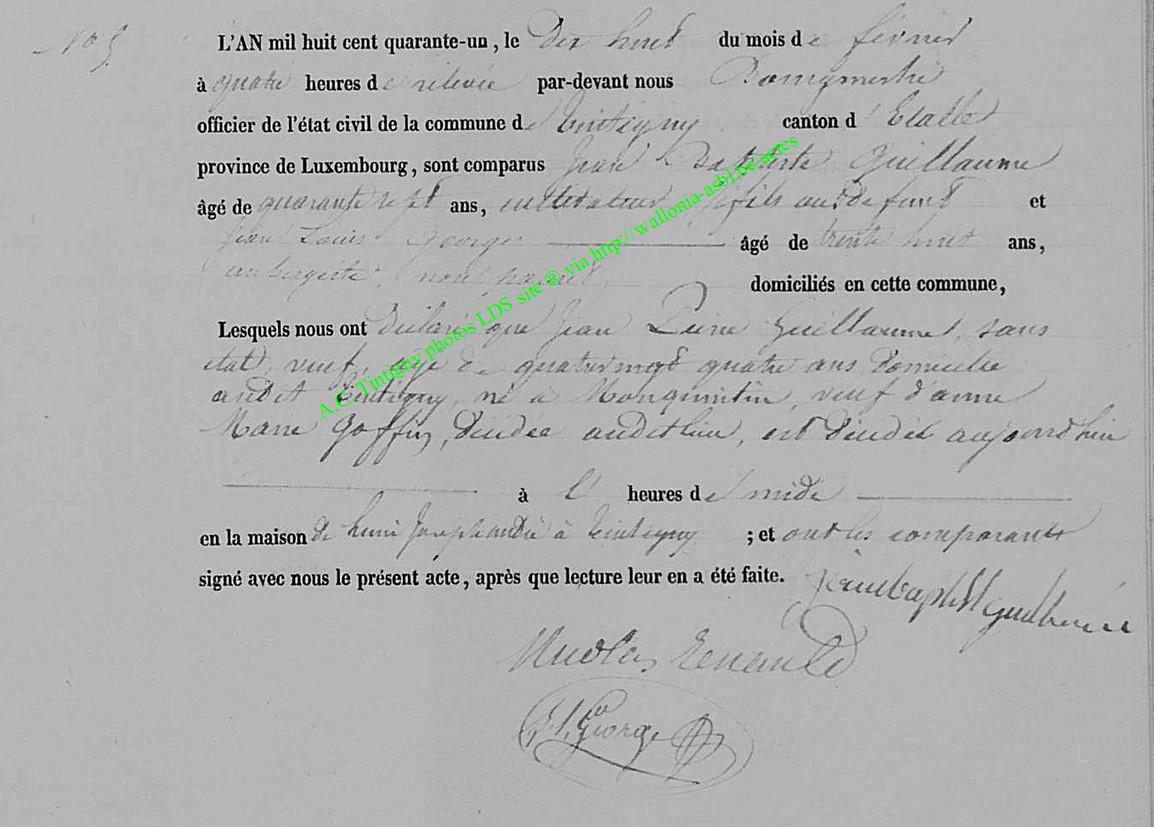 No 5
L'AN mil huit cent quarante-un, le dix huit du mois de février
à quatre heures de relevée par-devant nous Bourgmestre
officier de l'état civil de la commune de Tintigny canton d'Etalle
province de Luxembourg, sont comparus Jean Baptiste Guillaume
âgé de quarante sept ans, cultivateur, fils au défunt et
Jean Louis George âgé de trente huit ans,
aubergiste, non parent, domiciliés en cette commune,
Lesquels nous ont déclaré que Jean Guillaume, sans
état, veuf, agé de quatrevingt quatre ans domicilié
audit Tintigny, né à Monquintin, veuf d'anne
Marie Goffin, décédée audit lieu, est décédé aujourd'hui
à 1' heures de midi
en la maison de henri Joseph à Tintigny ; et ont les comparants
signé avec nous le présent acte, après que lecture leur en a été faite.
Jean baptist guillaume
Nicolas
J. L. George
A.C. Tintigny photos LDS site ® via http://wallonia-asbl.be/actes